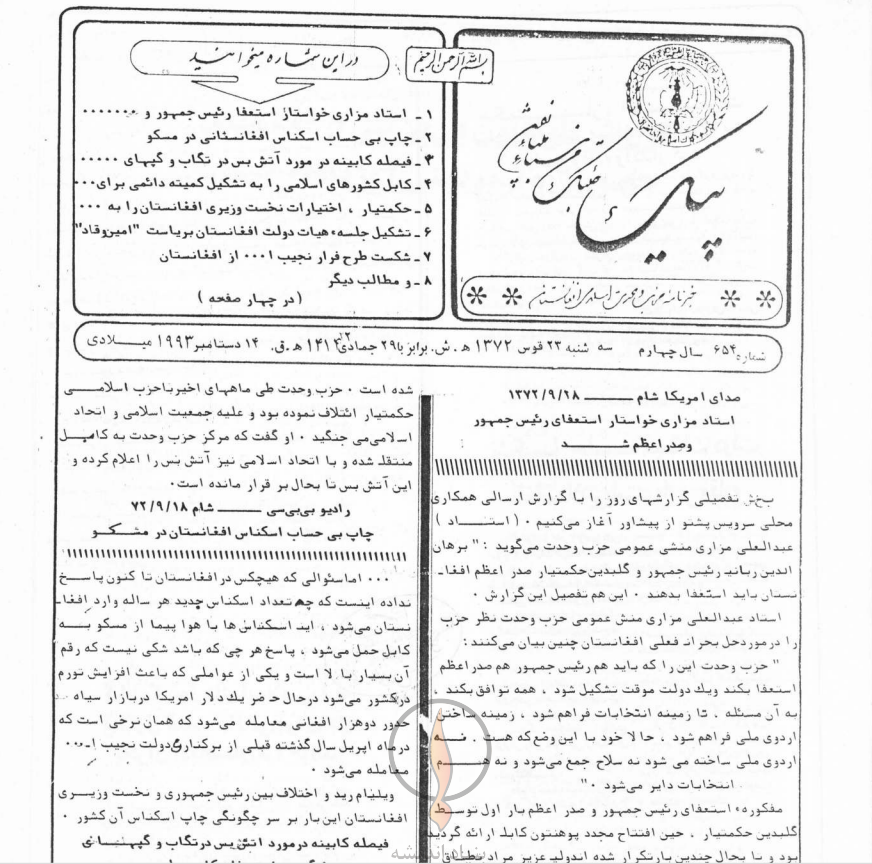 بسم الله الرحمن الرحیم
پیک
خبرنامه حرکت اسلامی افغانستان
در این شماره میخوانید
۱ـ استاد مزاری خواستار استعفا رئیس جمهور و ۰۰۰۰۰۰۰
۲ـ چاپ بی حساب اسکناس افغانستانی در مسکو
۳ـ فیصله کابینه در مورد آتش بس در تگاب و گپهای ۰۰۰۰۰
۴ـ کابل کشورهای اسلامی را به تشکیل کمیته دائمی برای۰۰۰
۵ـ حکمتیار ، اختیارات نخست وزیری افغانستان را به ۰۰۰
۶ـ تشکیل جلسهء هیات دولت افغانستان بریاست "امین وقاد"
۷ـ شکست طرح فرار نجیب ۰۰۰۱ از افغانستان
۸ـ و مطالب دیگر
( در چهار صفحه )
شماره ۶۵۴ سال چهارم سه شنبه ۲۳ قوس ۱۳۷۲ ه.ش. برابر با ۲۹ جمادی ۱۴۱۴ ه.ق. ۱۴ دسامبر ۱۹۹۳ میلادی
صدای امریکا شام ــــــ ۱۳۷۲/۹/۱۸
استاد مزاری خواستار استعفای رئیس جمهور
وصدراعظم شــــد
بخش تفصیلی گزارشهای روز را با گزارش ارسالی همکاری
محلی سرویس پشتو از پیشاور آغاز می‌کنیم ۰ ( استــاد )
عبدالعلی مزاری منشی عمومی حزب وحدت می‌گوید : " برهان
الدین ربانی رئیس جمهور و گلبدین حکمتیار صدر اعظم افغا‌ـ
نستان باید استعفا بدهند ۰ این هم تفصیل این گزارش ۰
استاد عبدالعلی مزاری منش عمومی حزب وحدت نظر حزب
را درمورد حل بحران فعلی افغانستان چنین بیان می‌کنند :
" حزب وحدت این را که باید هم رئیس جمهور هم صدراعظم
استعفا بکند ویک دولت موقت تشکیل شود ، همه توافق بکند ،
به آن مسئله . تا زمینه انتخابات فراهم شود ، زمینه ساختن
اردوی ملی فراهم شود ، حالا خود با این وضع که هست . نــه
اردوی ملی ساخته می شود نه سلاح جمع می‌شود و نه هــــم
انتخابات دایر می‌شود ۰ "
مفکورهء استعفای رئیس جمهور و صدر اعظم بار اول توسط
گلبدین حکمتیار ، حین افتتاح مجدد پوهنتون کابل ارائه گردید
بود و تا بحال چندین بار تکرار شده
شده است ۰ حزب وحدت طی ماههای اخیر با حزب اسلامـــی
حکمتیار ائتلاف نموده بود و علیه جمعیت اسلامی و اتحاد
اسلامی می جنگید ۰ او گفت که مرکز حزب وحدت به کامـل
منتقل شده و با اتحاد اسلامی نیز آتش بس را اعلام کرده و
این آتش بس تا بحال بر قرار مانده است۰
رادیو بی‌بی‌سی ــــــ شام ۷۲/۹/۱۸
چاپ بی حساب اسکناس افغانستان در مسکو
۰۰۰ اما سئوالی که هیچکس در افغانستان تا کنون پاسخ
نداده اینست که چه تعداد اسکناس جدید هر ساله وارد افغا‌ـ
نستان می‌شود ، این اسکناس ها با هوا پیما از مسکو بــه
کابل حمل می‌شود ، پاسخ هر چی که باشد شکی نیست که رقم
آن بسیار بالا است و یکی از عواملی که باعث افزایش تورم
در کشور می‌شود درحال حاضر یك دلار امریکا دربازار سیاه
حدور دوهزار افغانی معامله می‌شود که همان نرخی است که
درماه اپریل سال گذشته قبلی از برکناری دولت نجیب ا۰۰۰
معامله می‌شود ۰
ویلیام رید و اختلاف بین رئیس جمهوری و نخست وزیــری
افغانستان این بار بر سر چگونگی چاپ اسکناس آن کشور ۰
فیصله کابینه درمورد آتش بس در تگاب و گپهـــای